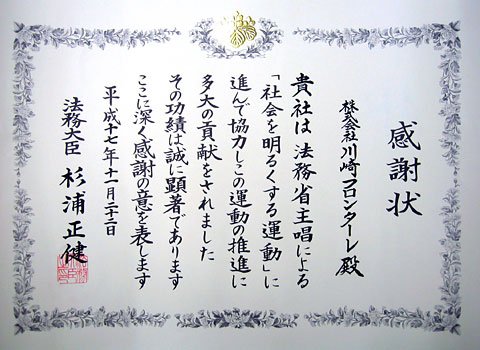 感謝状
株式会社川崎フロンターレ殿
貴社は法務省主唱による
「社会を明るくする運動」に
進んで協力しこの運動の推進に
多大の貢献をされました
その功績は誠に顕著であります
ここに深く感謝の意を表します
平成十七年十一月二十二日
法務大臣 杉浦正健